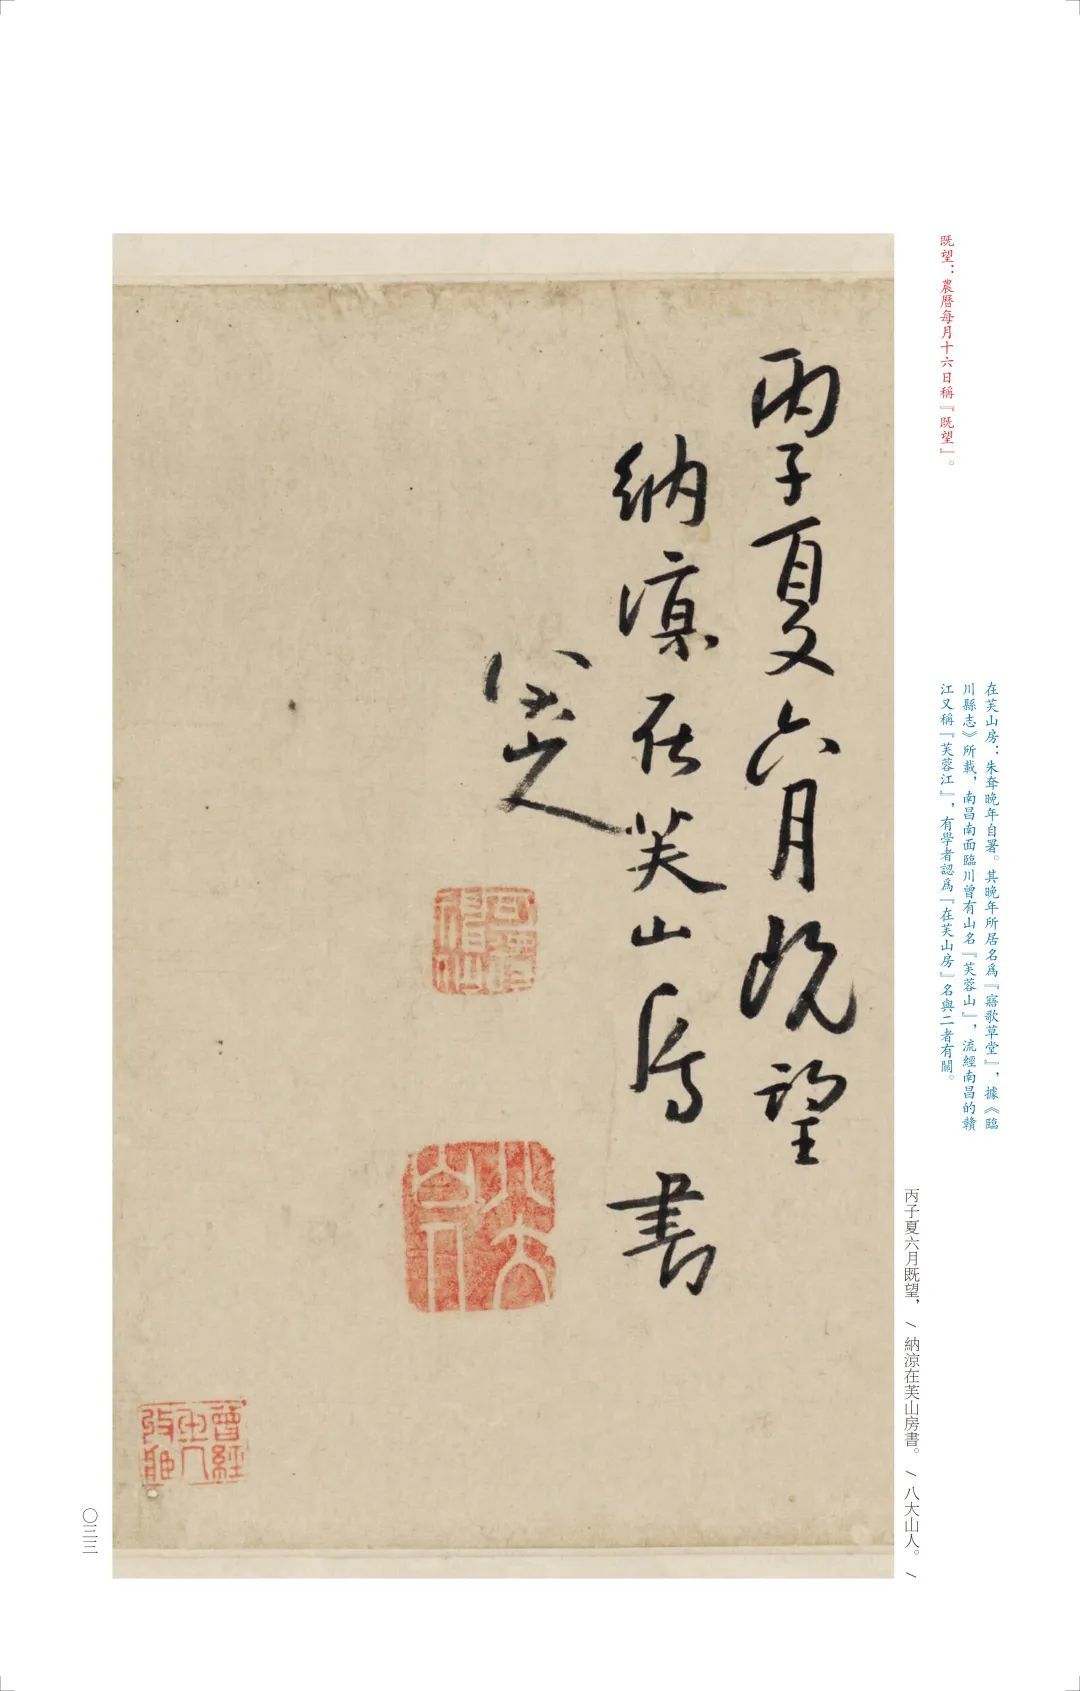 既望：農曆每月十六日稱『既望』。
在芙山房：朱耷晚年自署。其晚年所居名爲『寤歌草堂』，據《臨
川縣志》所載，南昌南面臨川曾有山名『芙蓉山』，流經南昌的贛
江又稱『芙蓉江』，有學者認爲『在芙山房』名與二者有關。
丙子夏六月既望，/納涼在芙山房書。/八大山人。/
丙子夏六月既望
納涼在芙山房書
八大山人
可得神仙
八大山人
曾經
〇三三